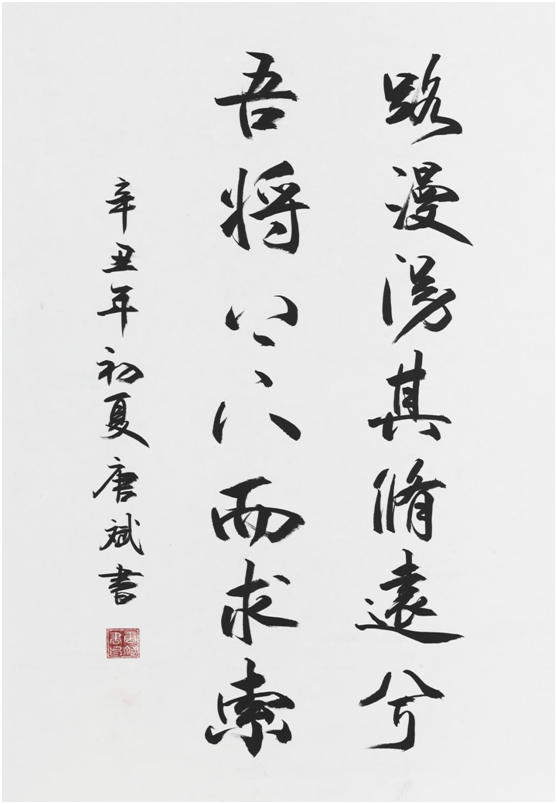 路漫漫其脩遠兮
吾将上下而求索
辛丑年初夏唐斌書